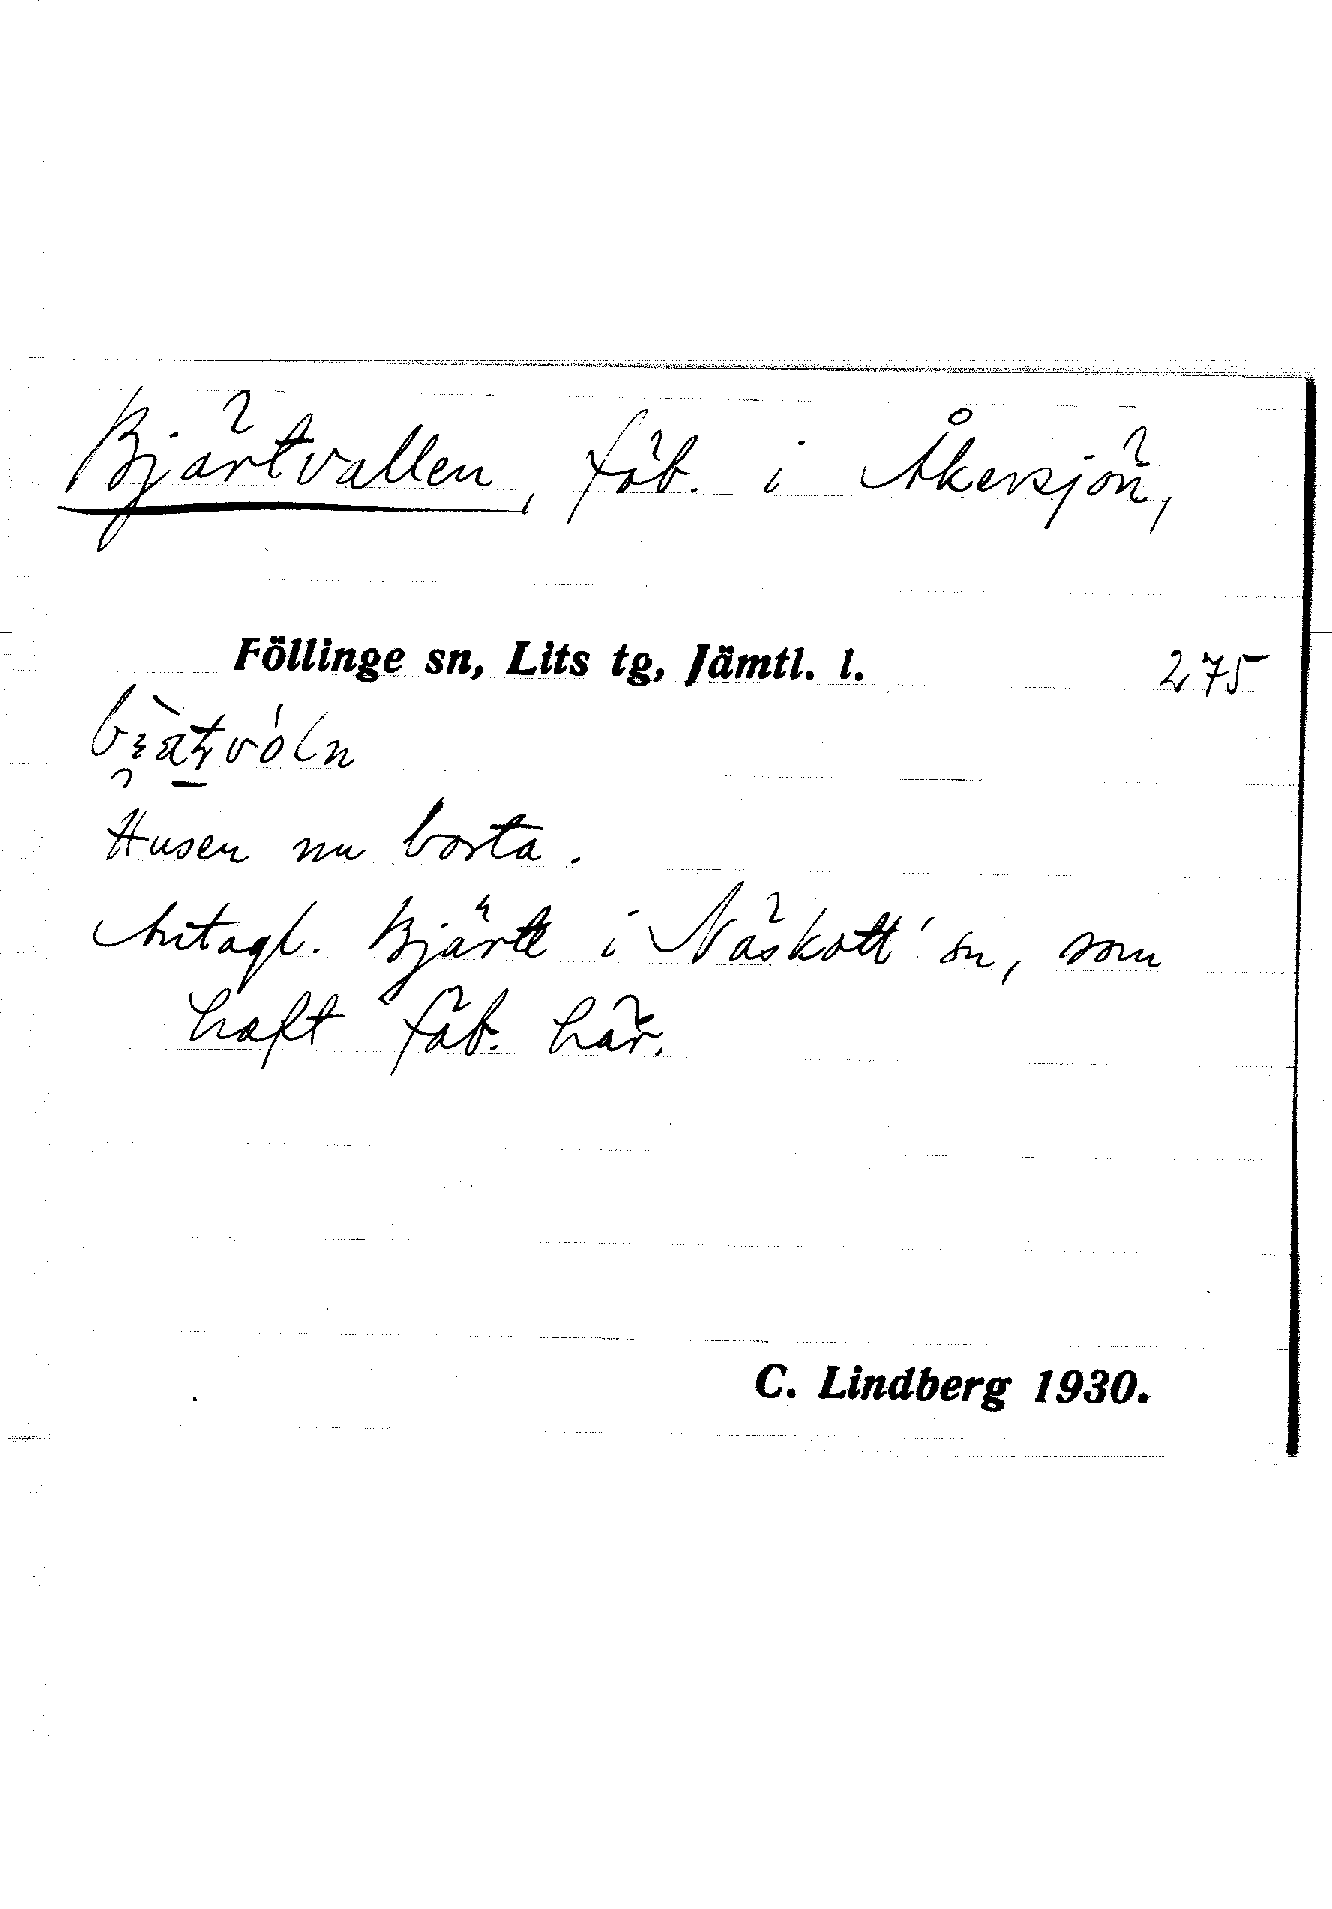 Bjärtvallen, fäb. i Åkersjön,
Föllinge sn, Lits tg, Jämtl. l. 275
Husen nu borta.
Antagl. Bjärtt i Näskott sn, som
haft fäb. här.
C. Lindberg 1930.